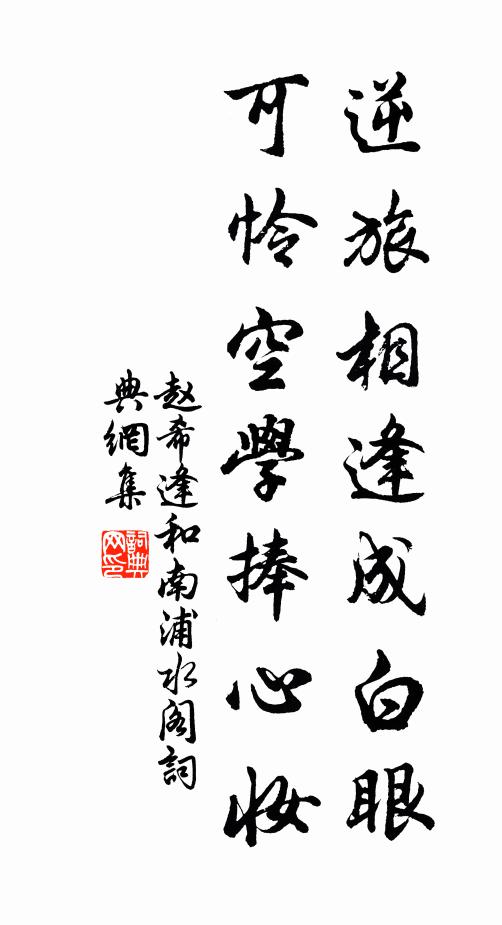 逆旅相逢成白眼
可怜空學捧心妆
赵希逢和南浦水阁詞
典網集
詞典网印